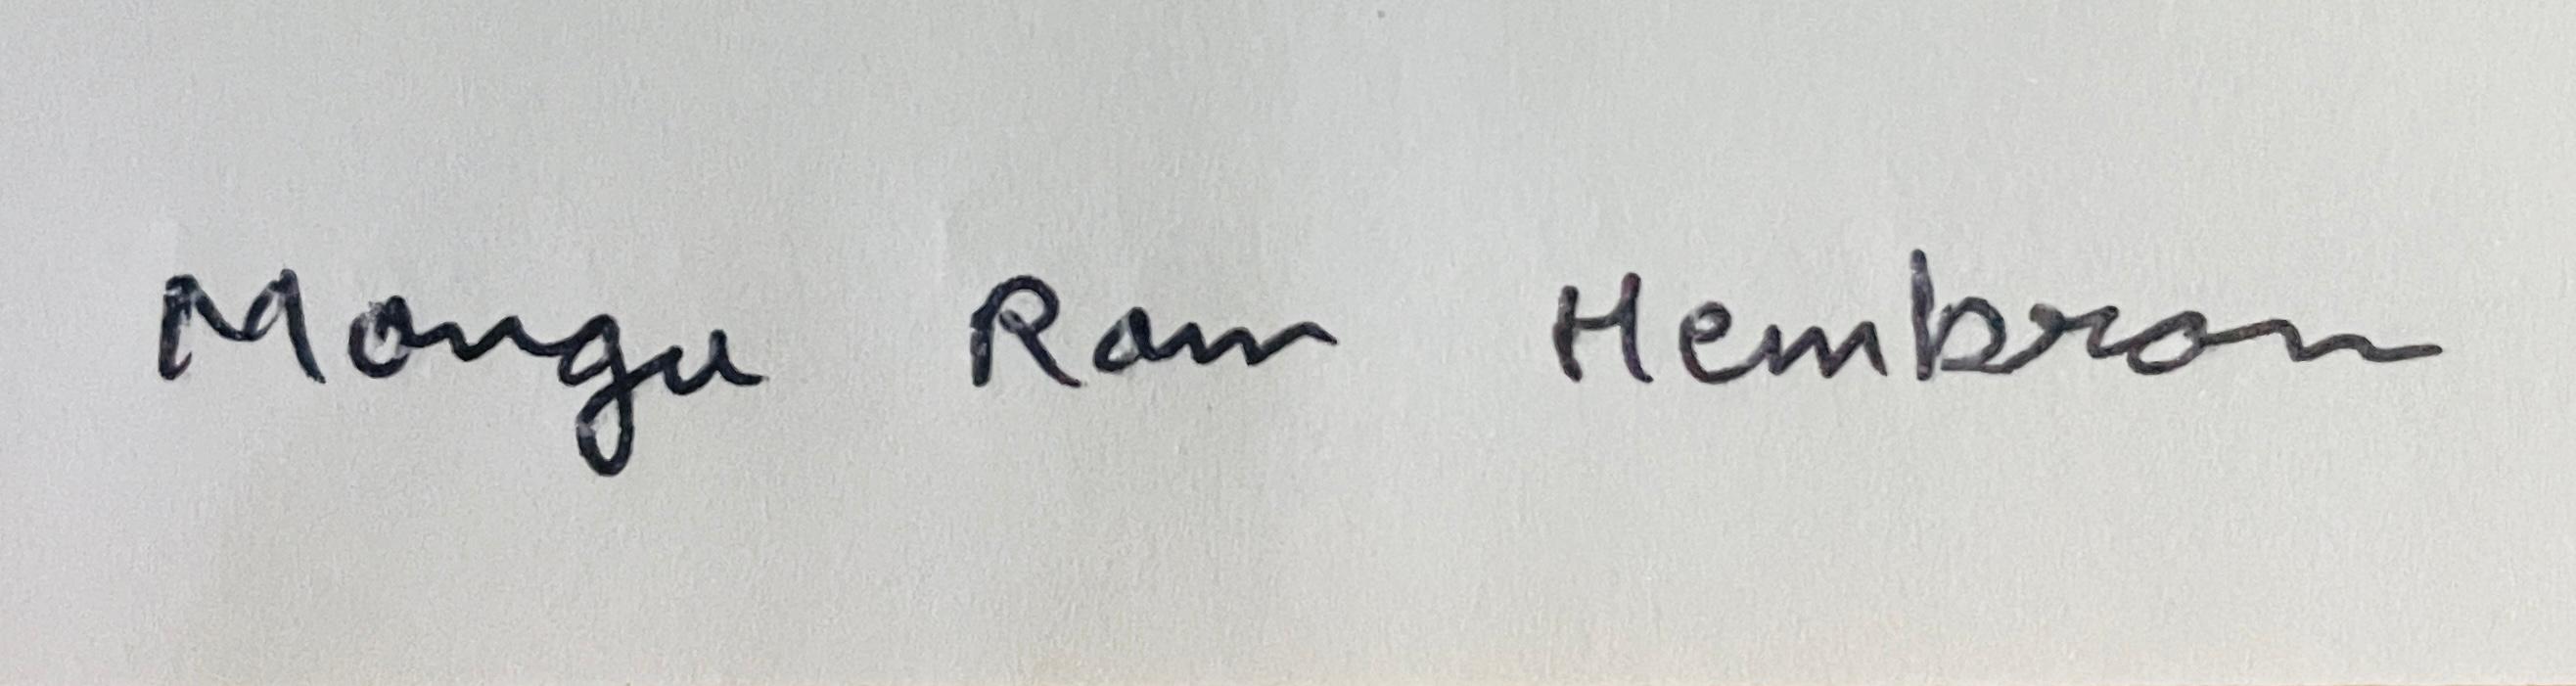 Mangu Ram Hembram